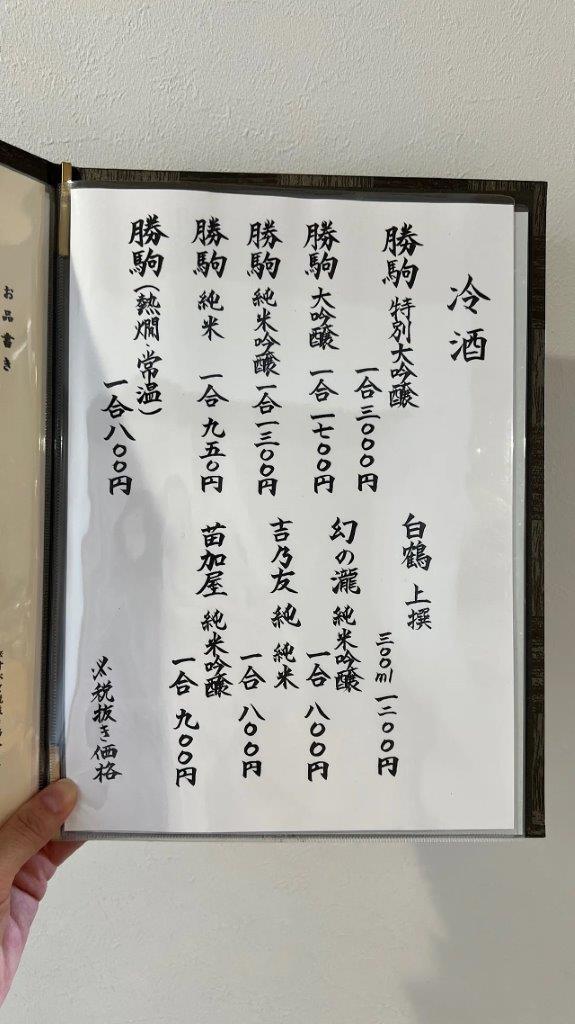 冷酒
勝駒 特別大吟醸
一合 三〇〇〇円
勝駒 大吟醸 一合 一七〇〇円
勝駒 純米吟醸 一合 一三〇〇円
勝駒 純米 一合 九五〇円
勝駒（熱燗・常温）
一合 八〇〇円
白鶴 上撰
三〇〇ml 一二〇〇円
幻の瀧 純米吟醸
一合 八〇〇円
吉乃友 純 純米
一合 八〇〇円
苗加屋 純米吟醸
一合 九〇〇円
※税抜き価格
お品書き